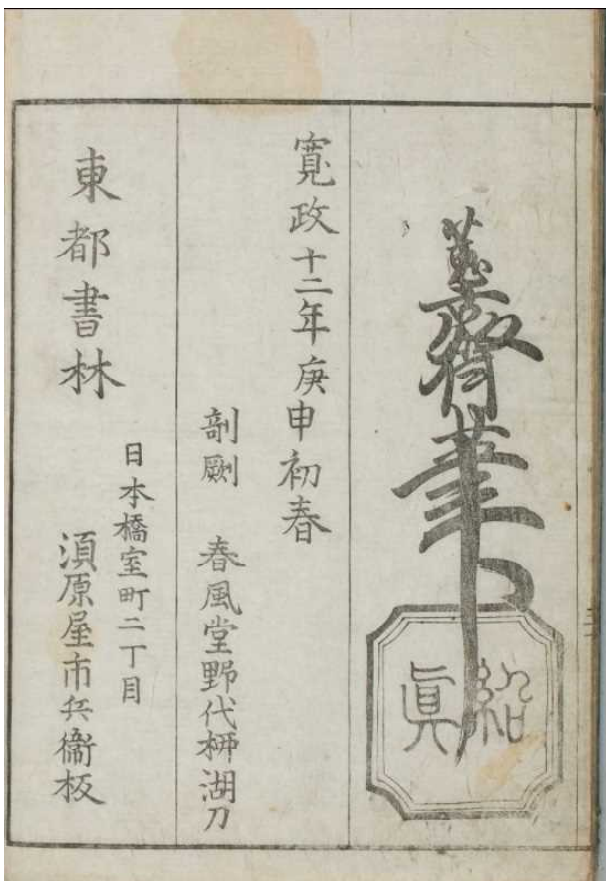 蕙齋筆
紹眞
寛政十二年庚申初春
剞劂　春風堂野代栁湖刀
東都書林
日本橋室町二丁目
湏原屋市兵衞板